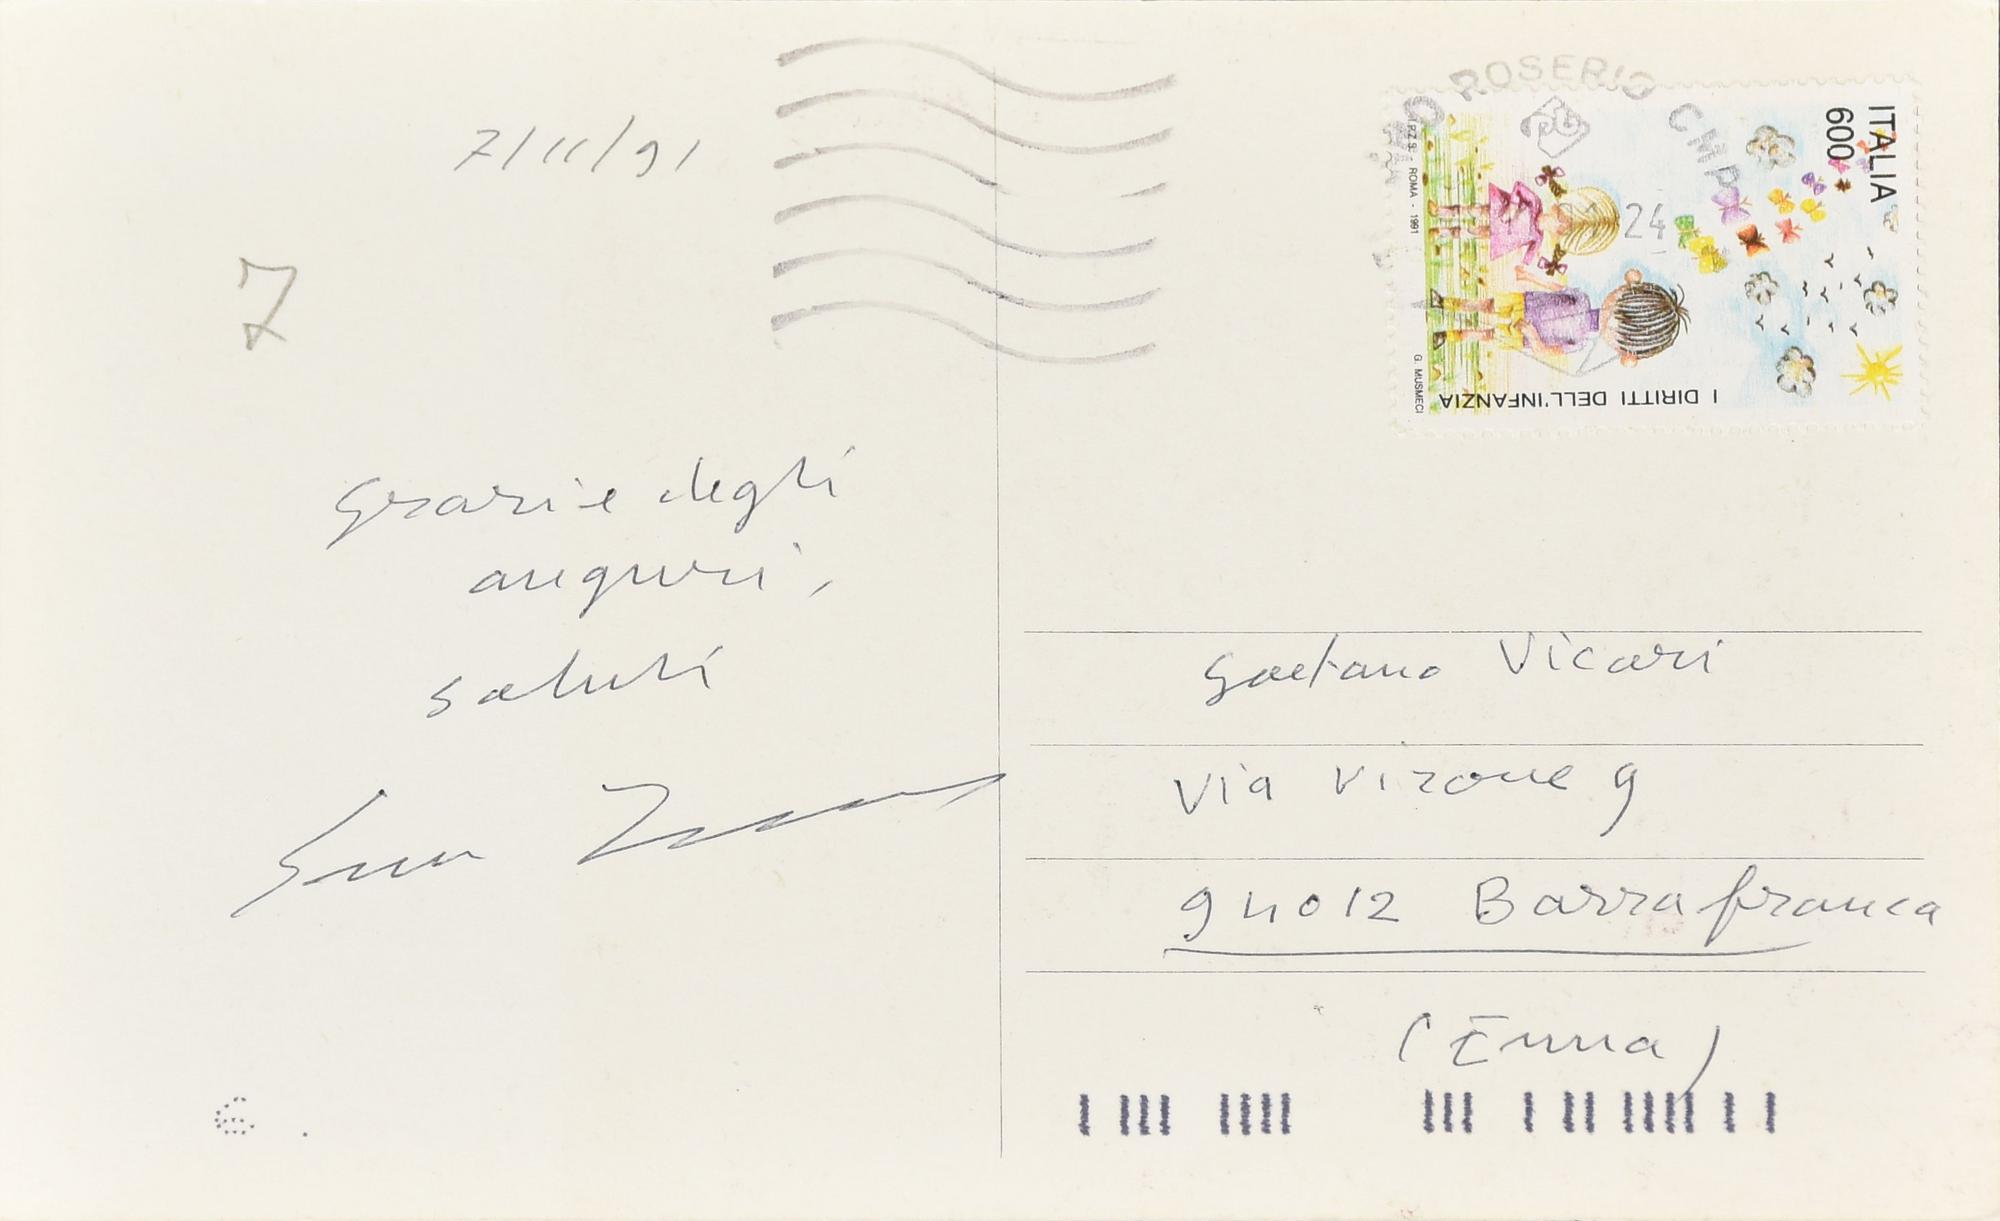 7/11/91
7
grazie degli
auguri,
saluti
ROSERIO CMP
24
ITALIA
600
I DIRITTI DELL'INFANZIA
I.P.Z.S. - ROMA - 1991
G. MUSMECI
Gaetano Vicari
Via Virone 9
94012 Barrafranca
(Enna)